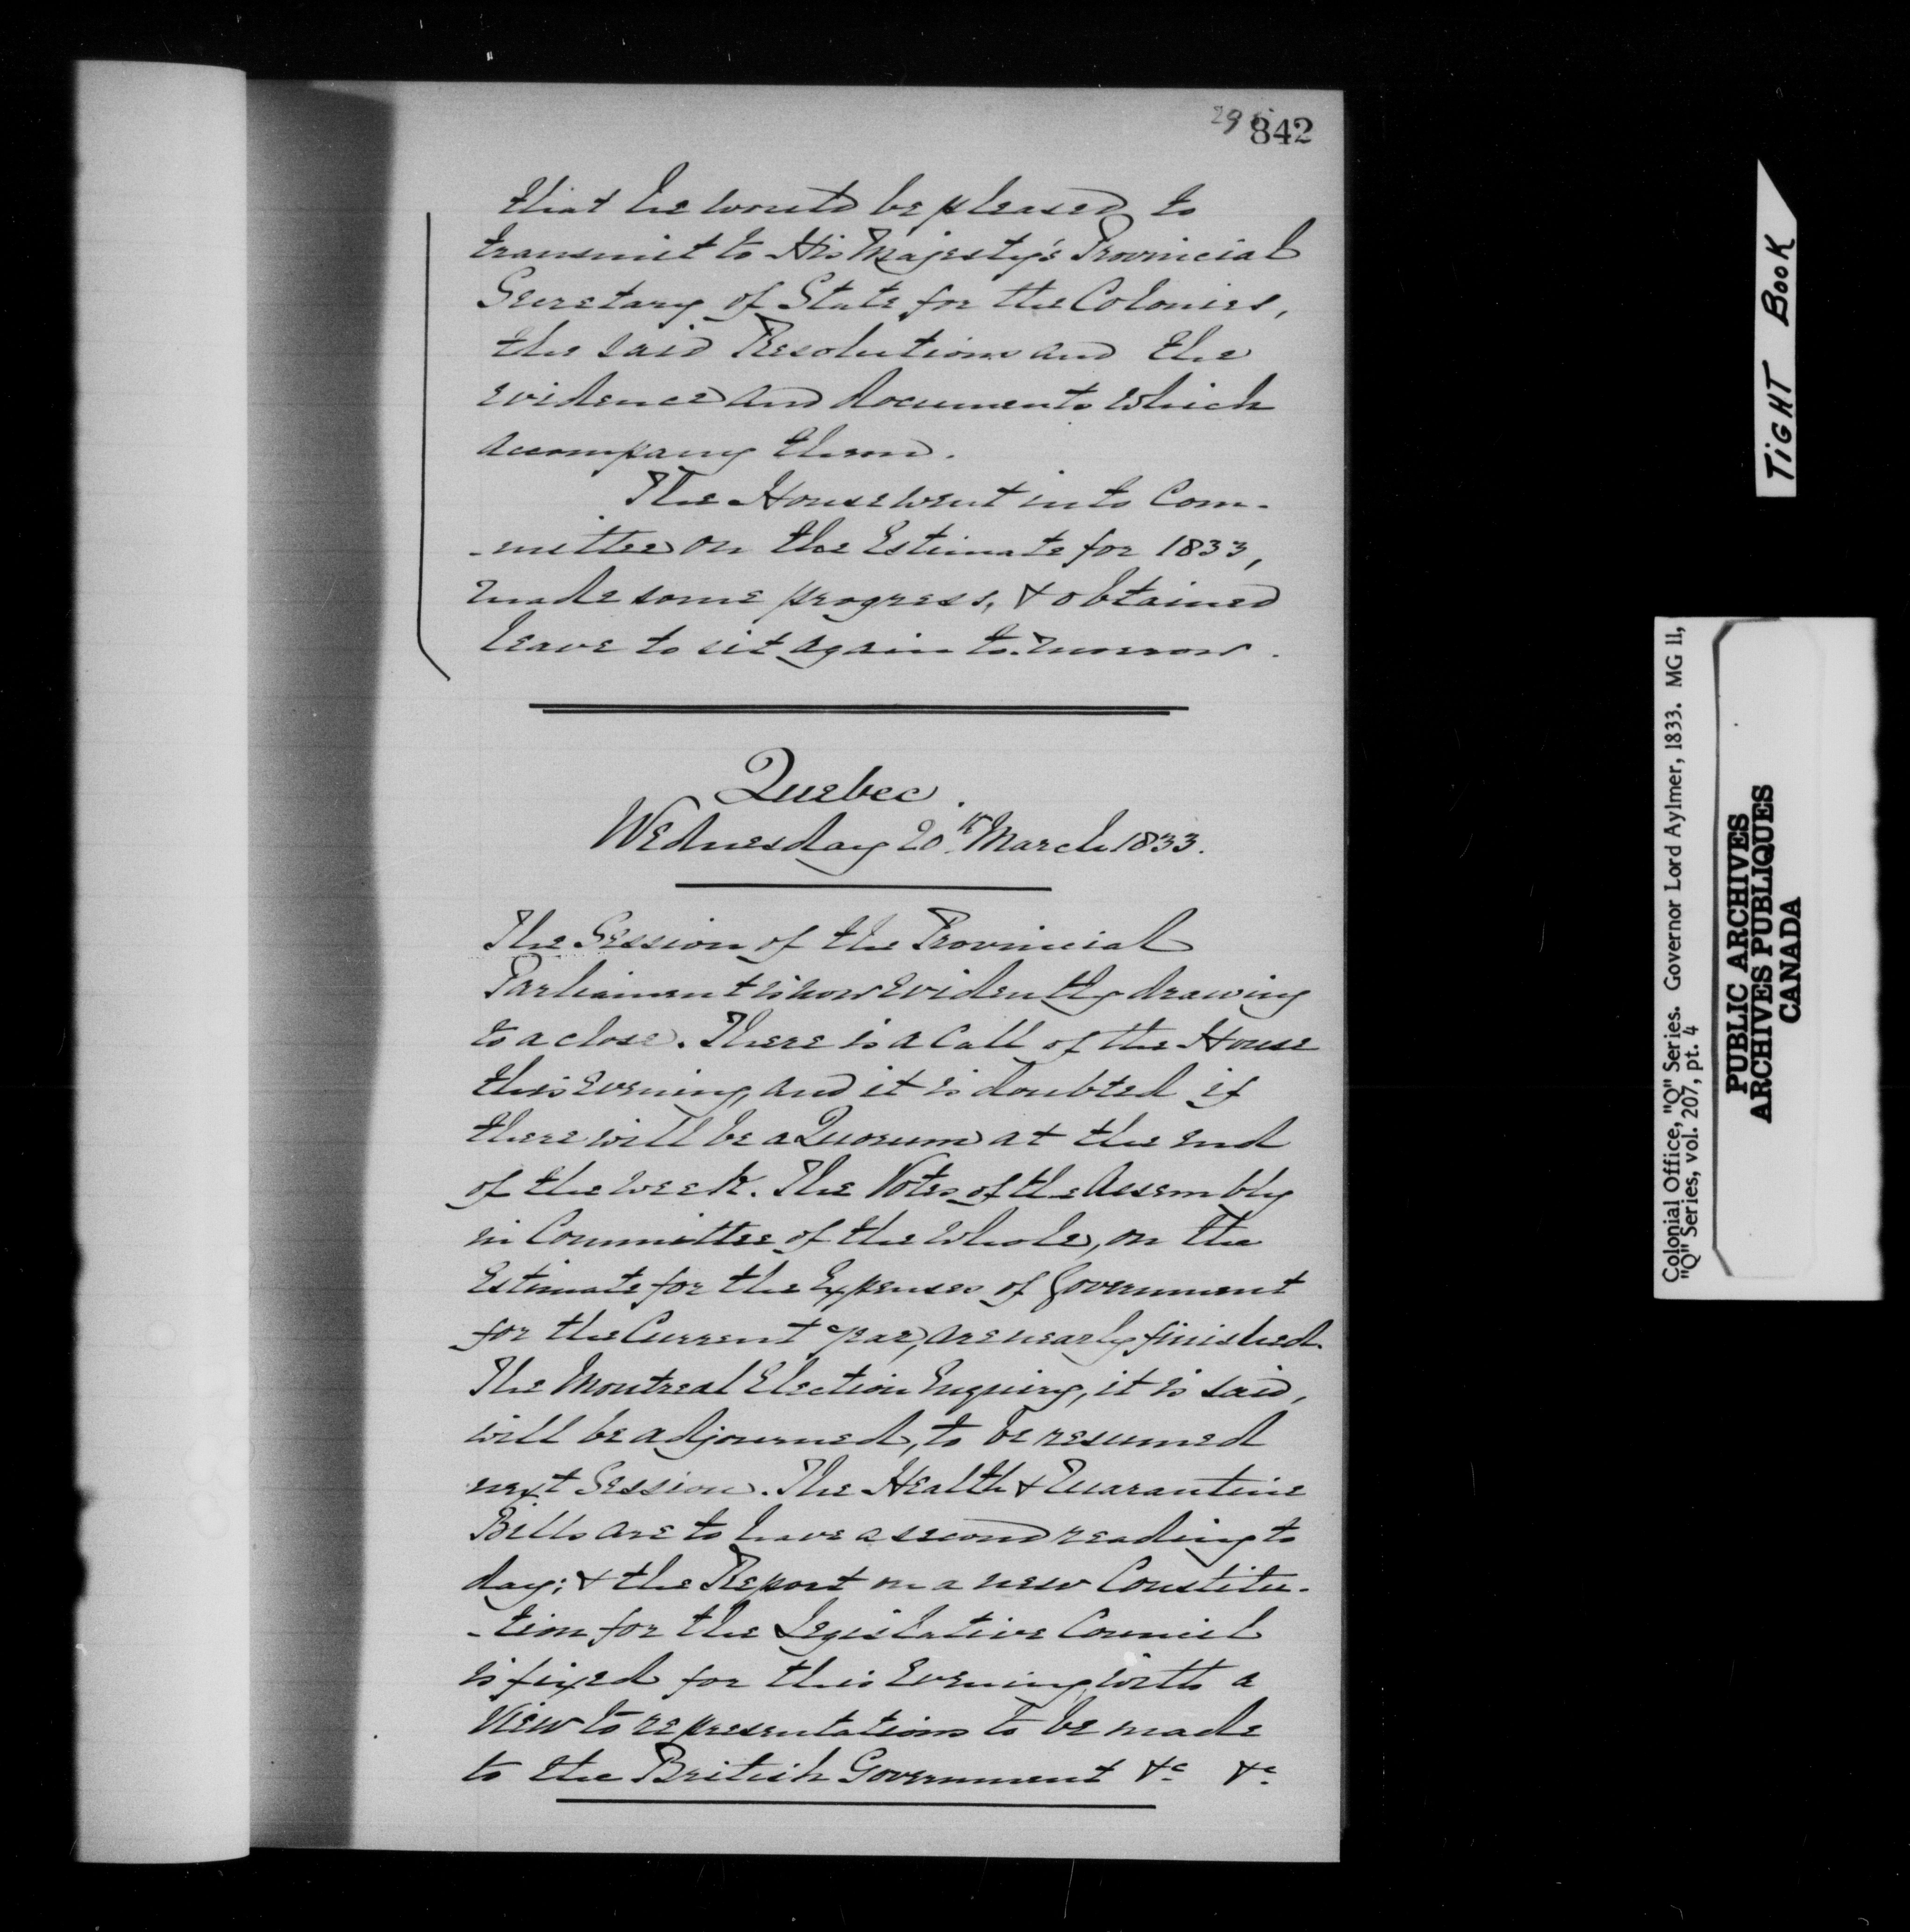 842
that he would be pleased to
transmit to His Majesty's Provincial
Secretary of State for the Colonies,
the said Resolutions and the
evidence and documents which
accompany them.
The House went into Com-
-mittee on the Estimate for 1833,
made some progress, & obtained
leave to sit again to-morrow.
Quebec.
Wednesday 20th March 1833.
The Session of the Provincial
Parliament is now evidently drawing
to a close. There is a Call of the House
this evening, and it is doubted if
there will be a Quorum at the end
of the week. The Votes of the Assembly
in Committee of the Whole, on the
Estimate for the Expenses of Government
for the Current year, are nearly finished.
The Montreal Election Enquiry, it is said,
will be adjourned, to be resumed
next Session. The Health & Quarantine
Bills are to have a second reading to
day; & the Report on a new Constitu-
-tion for the Legislative Council
is fixed for this evening, with a
view to representations to be made
to the British Government &c &c
TIGHT BOOK
Colonial Office, "Q" Series. Governor Lord Aylmer, 1833. MG 11,
"Q" Series, vol. 207, pt. 4
PUBLIC ARCHIVES
ARCHIVES PUBLIQUES
CANADA